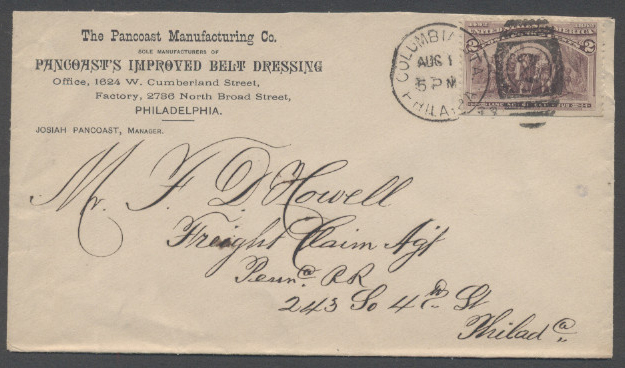 The Pancoast Manufacturing Co.
SOLE MANUFACTURERS OF
PANCOAST'S IMPROVED BELT DRESSING
Office, 1624 W. Cumberland Street,
Factory, 2736 North Broad Street,
PHILADELPHIA.
JOSIAH PANCOAST, MANAGER.
COLUMBIA
AUG 1
5 PM
PHILA. PA
UNITED STATES OF AMERICA
2 2
Mr. F. D. Howell
Freight Claim Agt
Penna. RR
243 So 4th St
Philada